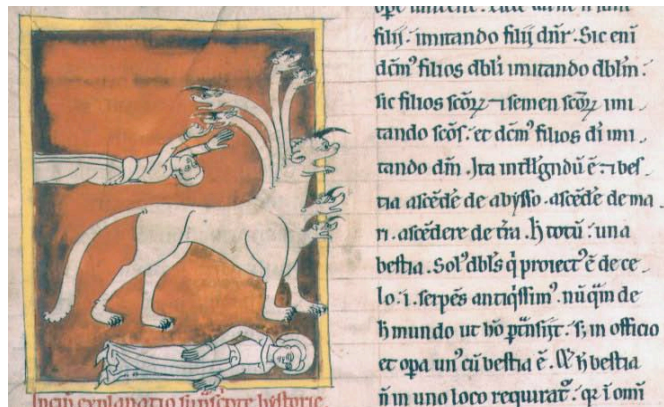 filij. imitando filij dn̄r. Sic eni
dcm̄ꝰ filios dbl̄i imitando dbl̄m.
sic filios scōꝝ ⁊ semen scōꝝ imi
tando scōs. et dcm̄ꝰ filios dī imi
tando dm̄. Ita intlīgndū ē. ⁊ bes
tia ascēdē de abysso. ascēdē de ma
ri. ascēdere de tr̄a. h̄ totū una
bestia. Solꝰ dbl̄s q̇ proiectꝰ ē de ce
lo .i. serpēs antiq̇ssimꝰ. nū q̄m de
h̄ mundo ut ho ptn̄sijt. s; in officio
et opa unꝰ cū bestia ē. h̄ bestia
n̄ in uno loco requirat᷑. qꝛ ī omī
Incip̄ explanatio hystorie